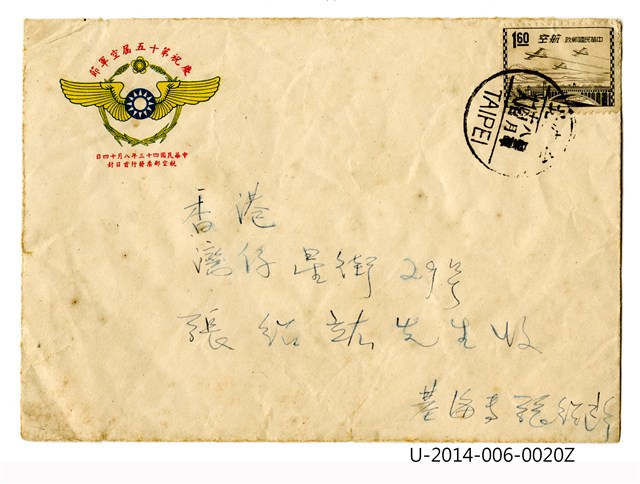 慶祝第十五屆空軍節
中華民國四十三年八月十四日
航空郵票發行首日封
1.60
航空
中華民國郵政
TAIPEI
香港
灣仔星街29号
張紹 先生收
U-2014-006-0020Z